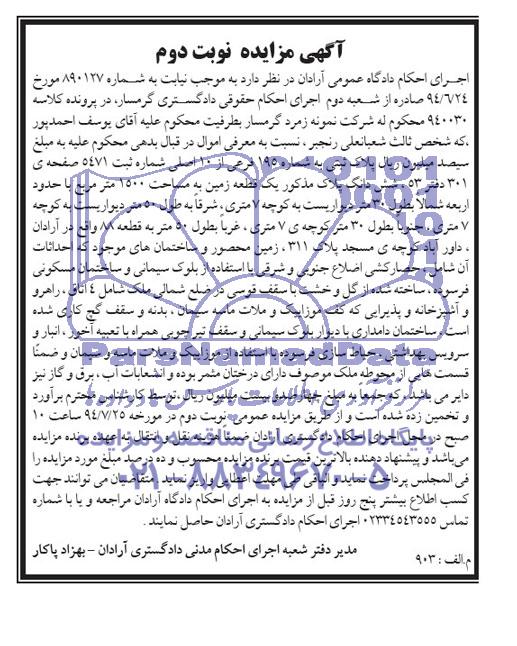 آگهی مزایده نوبت دوم
اجرای احکام دادگاه عمومی آرادان در نظر دارد به موجب نیابت به شماره ۸۹۰۱۲۷ مورخ
۹۴/۶/۲۴ صادره از شعبه دوم اجرای احکام حقوقی دادگستری گرمسار، در پرونده کلاسه
۹۴۰۰۳۰ محکوم له شرکت نمونه زمرد گرمسار بطرفیت محکوم علیه آقای یوسف احمدپور
،که شخص ثالث شعبانعلی رنجبر ، نسبت به معرفی اموال در قبال بدهی محکوم علیه به مبلغ
سیصد میلیون ریال پلاک ثبتی به شماره ۱۹۵ فرعی از ۱۰ اصلی شماره ثبت ۵۴۷۱ صفحه ی
۳۰۱ دفتر ۵۳ ، شش دانگ پلاک مذکور یک قطعه زمین به مساحت ۱۵۰۰ متر مربع با حدود
اربعه شمالا بطول ۳۰ متر دیواریست به کوچه ۷ متری ، شرقا به طول ۵۰ متر دیواریست به کوچه
۷ متری ، جنوبا بطول ۳۰ متر کوچه ی ۷ متری ، غربا بطول ۵۰ متر به قطعه ۸۸ واقع در آرادان
، داور آباد کوچه ی مسجد پلاک ۳۱۱ ، زمین محصور و ساختمان های موجود که احداثات
آن شامل ، حصارکشی اضلاع جنوبی و شرقی با استفاده از بلوک سیمانی و ساختمان مسکونی
فرسوده ، ساخته شده از گل و خشت با سقف قوسی در ضلع شمالی ملک شامل ۴ اتاق ، راهرو
و آشپزخانه و پذیرایی که کف موزاییک و ملات ماسه سیمان ، بدنه و سقف گچ کاری شده
است . ساختمان دامداری با دیوار بلوک سیمانی و سقف تیرچوبی همراه با تعبیه آخور ، انبار و
سرویس بهداشتی ، حیاط سازی فرسوده با استفاده از موزاییک و ملات ماسه و سیمان و ضمنا
قسمت هایی از محوطه ملک موصوف دارای درختان مثمر بوده و انشعابات آب ، برق و گاز نیز
دایر می باشد ، که جمعا به مبلغ چهارصدو بیست میلیون ریال ،توسط کارشناس محترم برآورد
و تخمین زده شده است و از طریق مزایده عمومی نوبت دوم در مورخه ۹۴/۷/۲۵ ساعت ۱۰
صبح در محل اجرای احکام دادگستری آرادان ضمنا هزینه نقل و انتقال به عهده برنده مزایده
می باشد و پیشنهاد دهنده بالاترین قیمت برنده مزایده محسوب و ده درصد مبلغ مورد مزایده را
فی المجلس پرداخت نماید و الباقی طی مهلت اعطایی واریز نماید . متقاضیان می توانند جهت
کسب اطلاع بیشتر پنج روز قبل از مزایده به اجرای احکام دادگاه آرادان مراجعه و یا با شماره
تماس ۰۲۳۳۴۵۴۳۵۵۵ اجرای احکام دادگستری آرادان حاصل نمایند .
مدیر دفتر شعبه اجرای احکام مدنی دادگستری آرادان - بهزاد پاکار
م.الف : ۹۰۳
ParsNamadData
پایگاه اطلاع رسانی مناقصه و مزایده
۰۲۱-۸۸۳۴۹۶۷۰-۵